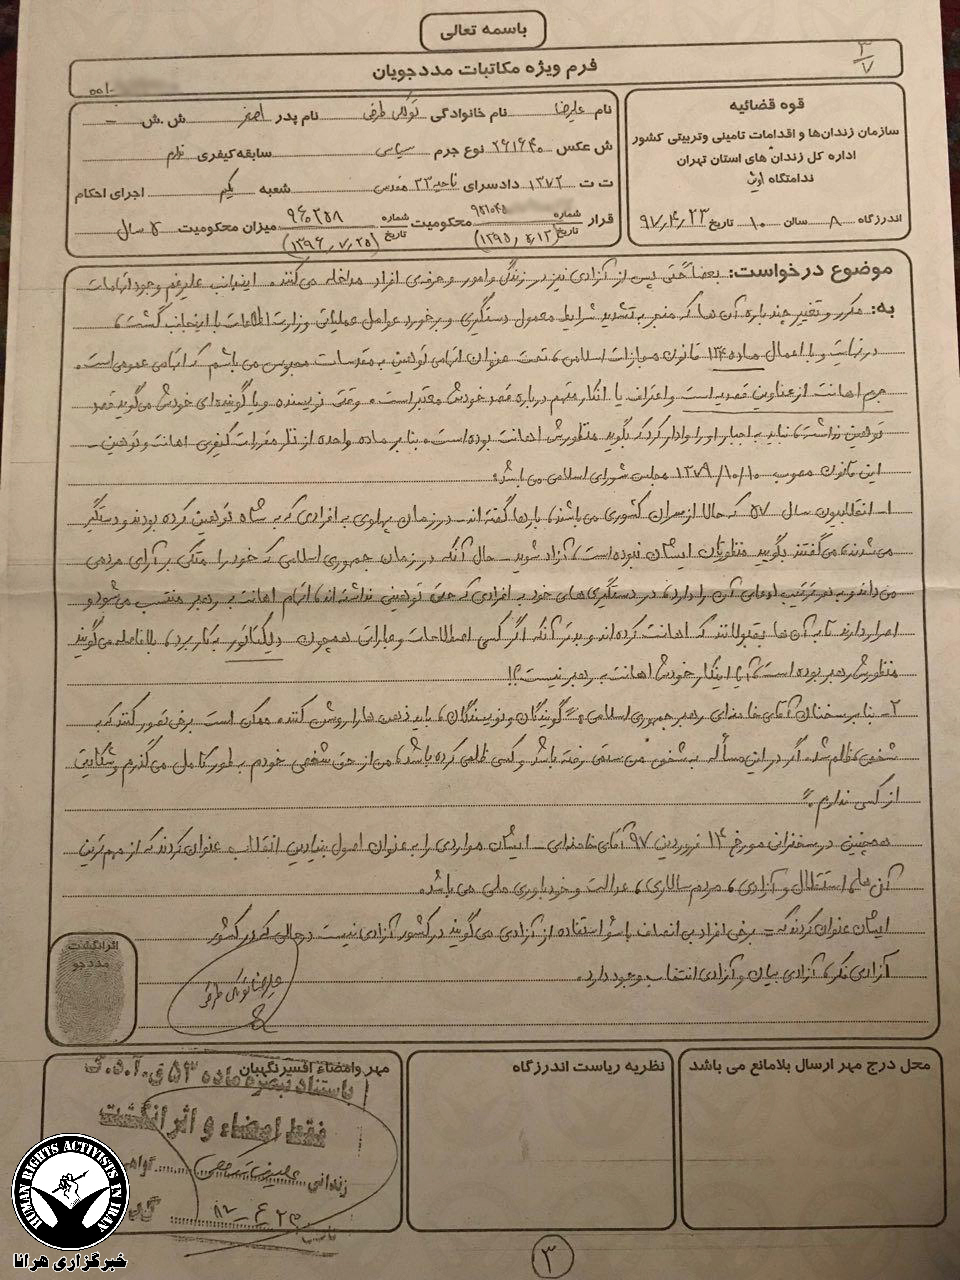 باسمه تعالی
۳/۷
فرم ویژه مکاتبات مددجویان
قوه قضائیه
سازمان زندان‌ها و اقدامات تامینی وتربیتی کشور
اداره کل زندان های استان تهران
ندامتگاه اوین
اندرزگاه ۸ سالن ۱۰ تاریخ ۹۷٫۴٫۲۳
نام علیرضا نام خانوادگی توکلی طرقی نام پدر اصغر ش.ش. –
ش عکس ۲۶۱۶۴۰ نوع جرم سیاسی سابقه کیفری ندارم
ت ت ۱۳۷۲ دادسرای ناحیه ۳۳ مقدس شعبه یکم اجرای احکام
قرار شماره تاریخ (۱۳۹۵٫۴٫۱۲) محکومیت شماره ۹۶۰۲۵۸ تاریخ (۱۳۹۶٫۷٫۲۵) میزان محکومیت ۵ سال
موضوع درخواست: بعضاً حتی پس از آزادی نیز در زندگی و امور و حرفه‌ی افراد مداخله می‌کنند. اینجانب علیرغم وجود اتهامات
به: مکرر و تغییر چندباره آن‌ها که منجر به تشدید شرایط معمول دستگیری و برخورد عوامل عملیاتی وزارت اطلاعات با اینجانب گشت،
در نهایت و با اعمال ماده ۱۳۴ قانون مجازات اسلامی، تحت عنوان اتهامی توهین به مقدسات محبوس می باشم که اتهامی عمومی است.
جرم اهانت از عناوین قصدیه است و اعتراف یا انکار متهم درباره قصد خودش معتبر است. وقتی نویسنده و یا گوینده‌ای خودش می‌گوید قصد
توهین نداشته، نباید به اجبار او را وادار کرد که بگوید منظورش اهانت بوده است. بنا بر ماده واحده از نظر مقررات کیفری اهانت و توهین –
این قانون مصوب ۱۳۷۹/۱۰/۱۰ مجلس شورای اسلامی می باشد.
۱- انقلابیون سال ۵۷ که حالا از سران کشوری می باشند، بارها گفته اند – در زمان پهلوی به افرادی که به شاه توهین کرده بودند و دستگیر
می شدند، می‌گفتند بگویید منظورتان ایشان نبوده است، آزاد شوید – حال آنکه در زمان جمهوری اسلامی که خود را متکی بر آرای مردمی
می‌داند و به هر ترتیب ادعای آن را دارد، در دستگیری های خود به افرادی که حتی توهینی نداشته اند، اتهام اهانت به رهبر منتسب می‌شود و
اصرار دارند تا به آن ها بقبولانند که اهانت کرده اند و بدتر آنکه اگر کسی اصطلاحات و عباراتی همچون دیکتاتور به کار برد، بلافاصله می‌گویند
منظورش رهبر بوده است، آیا اینکار خودش اهانت به رهبر نیست؟!
۲- بنا بر سخنان آقای خامنه‌ای رهبر جمهوری اسلامی: = گویندگان و نویسندگان، باید ذهن ها را روشن کنند. ممکن است برخی تصور کنند که به
شخص، ظلم شد. اگر در این مسأله به شخص من ستمی رفته باشد و کسی ظلمی کرده باشد، من از حق شخصی خودم به طور کامل می‌گذرم و شکایت
از کسی ندارم. =
همچنین در سخنرانی مورخ ۱۴ فروردین ۹۷ آقای خامنه‌ای – ایشان مواردی را به عنوان اصول بنیادین انقلاب عنوان کردند که از مهم ترین
آن ها، استقلال و آزادی، مردم سالاری، عدالت و خودباوری ملی می باشد.
ایشان عنوان کردند که – برخی افراد بی انصاف با سوء استفاده از آزادی می‌گویند در کشور آزادی نیست در حالی که در کشور
آزادی فکر، آزادی بیان و آزادی انتخاب وجود دارد.
علیرضا توکلی طرقی
اثرانگشت
مددجو
محل درج مهر ارسال بلامانع می باشد
نظریه ریاست اندرزگاه
مهر وامضاء افسرنگهبان
باستناد تبصره ماده ۵۳ ق.آ.د.ک
فقط امضاء و اثر انگشت
زندانی علیرضا توکلی
۳
HUMAN RIGHTS ACTIVISTS IN IRAN
خبرگزاری هرانا